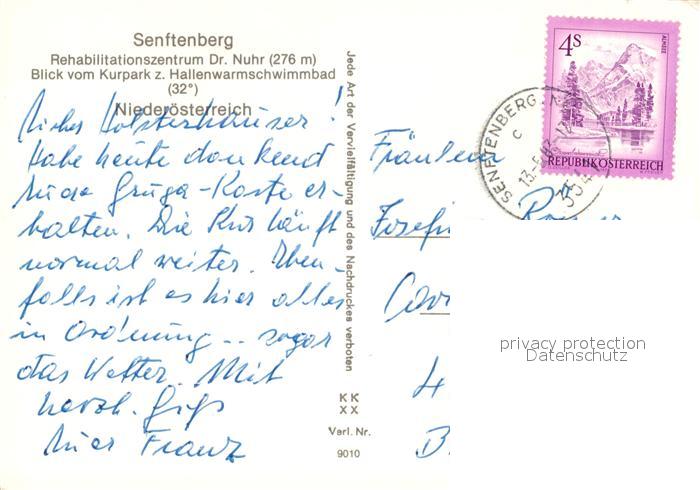 Senftenberg
Rehabilitationszentrum Dr. Nuhr (276 m)
Blick vom Kurpark z. Hallenwarmschwimmbad
(32°)
Niederösterreich
Liebes Holsterhauser!
Habe heute dankend
Gruga-Karte er-
halten. Die Kur läuft
normal weiter. Eben-
falls ist es hier alles
in Ordnung... sogar
das Wetter. Mit
herzl.
Franz
Jede Art der Vervielfältigung und des Nachdruckes verboten
KK
XX
Verl. Nr.
9010
4s
ALMSEE
REPUBLIK ÖSTERREICH
SENFTENBERG
c
3541
Fräulein
Josefi
4
B
privacy protection
Datenschutz